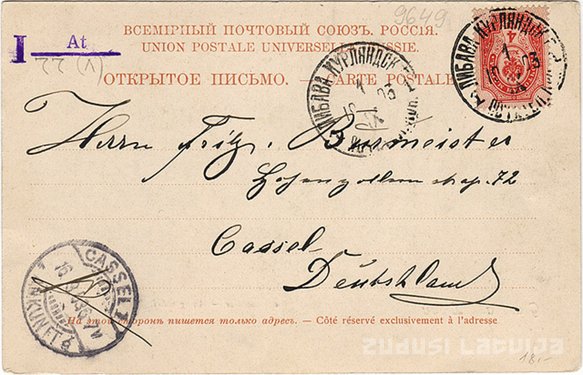 9649.
I At
22 (Λ)
ВСЕМІРНЫЙ ПОЧТОВЫЙ СОЮЗЪ. РОССІЯ.
UNION POSTALE UNIVERSELLE. RUSSIE.
ОТКРЫТОЕ ПИСЬМО. — CARTE POSTALE
ЛИБАВА КУРЛЯНДСК.
ЛИБАВА КУРЛЯНДСК.
4
Herrn Fritz Burmeister
Hohenzollernstrap. 72
Cassel
Deutschland
CASSEL
ANKUNFT
На этой сторонѣ пишется только адресъ. — Côté réservé exclusivement à l'adresse
Zudusi Latvija
18.-